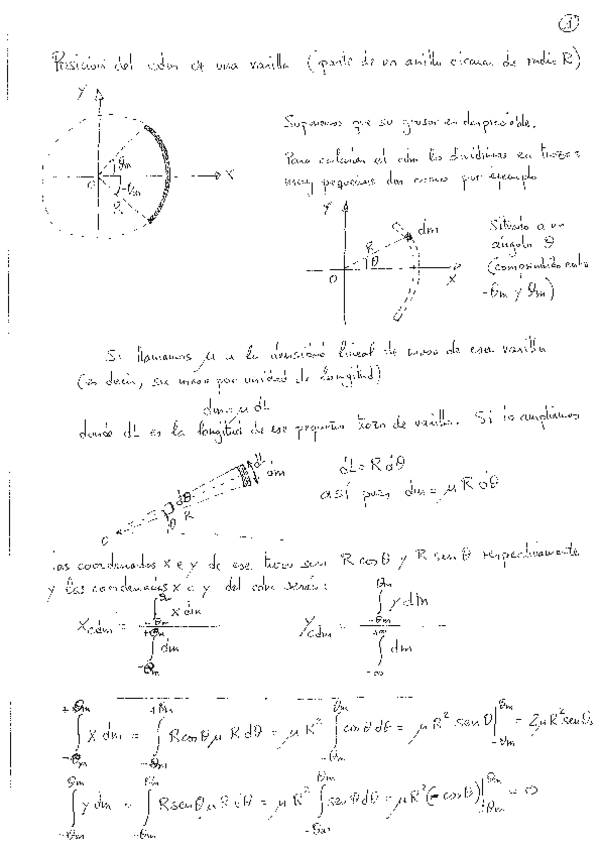 1
Posición del cdm de una varilla (parte de un anillo circular de radio R)
Y
Supongamos que su grosor es despreciable.
θm
O
-θm
X
R
Para calcular el cdm la dividimos en trozos
muy pequeños dm como por ejemplo
Y
dm
R
θ
O
X
Situado a un
ángulo θ
(comprendido entre
-θm y θm)
Si llamamos μ a la densidad lineal de masa de esa varilla
(es decir, su masa por unidad de longitud)
dm = μ dL
donde dL es la longitud de ese pequeño trozo de varilla. Si lo ampliamos
dL
dm
dθ
θ
R
O
dL = R dθ
así pues dm = μ R dθ
Las coordenadas x e y de ese trozo son R cos θ y R sen θ respectivamente
y las coordenadas x e y del cdm serán:
Xcdm = ∫_{-θm}^{θm} x dm / ∫_{-θm}^{+θm} dm
Ycdm = ∫_{-θm}^{θm} y dm / ∫ dm
∫_{-θm}^{+θm} x dm = ∫_{-θm}^{+θm} R cos θ μ R dθ = μ R² ∫_{-θm}^{θm} cos θ dθ = μ R² sen θ |_{-θm}^{θm} = 2μ R² sen θ
∫_{-θm}^{θm} y dm = ∫_{-θm}^{θm} R sen θ μ R dθ = μ R² ∫_{-θm}^{θm} sen θ dθ = μ R² (-cos θ) |_{-θm}^{θm} = 0